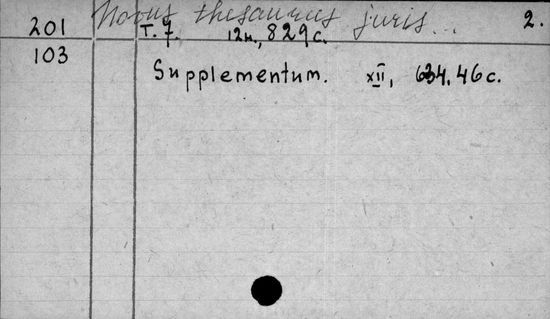 Novus thesaurus juris... 2.
201 T. 7. 12н., 829 с.
103
Supplementum. XII, 634.46 с.